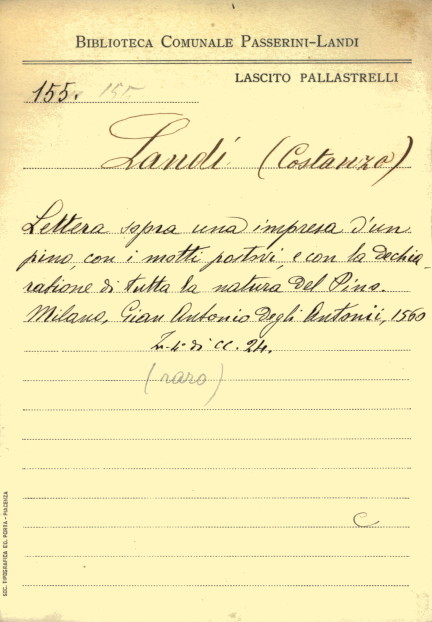 BIBLIOTECA COMUNALE PASSERINI-LANDI
LASCITO PALLASTRELLI
155. 155
Landi (Costanzo)
Lettera sopra una impresa d'un
pino, con i motti postivi, e con la dechia-
ratione di tutta la natura del Pino.
Milano, Gian Antonio degli Antonii, 1560
In-4° di cc. 24.
(raro)
C
SOC. TIPOGRAFICA ED. PORTA - PIACENZA